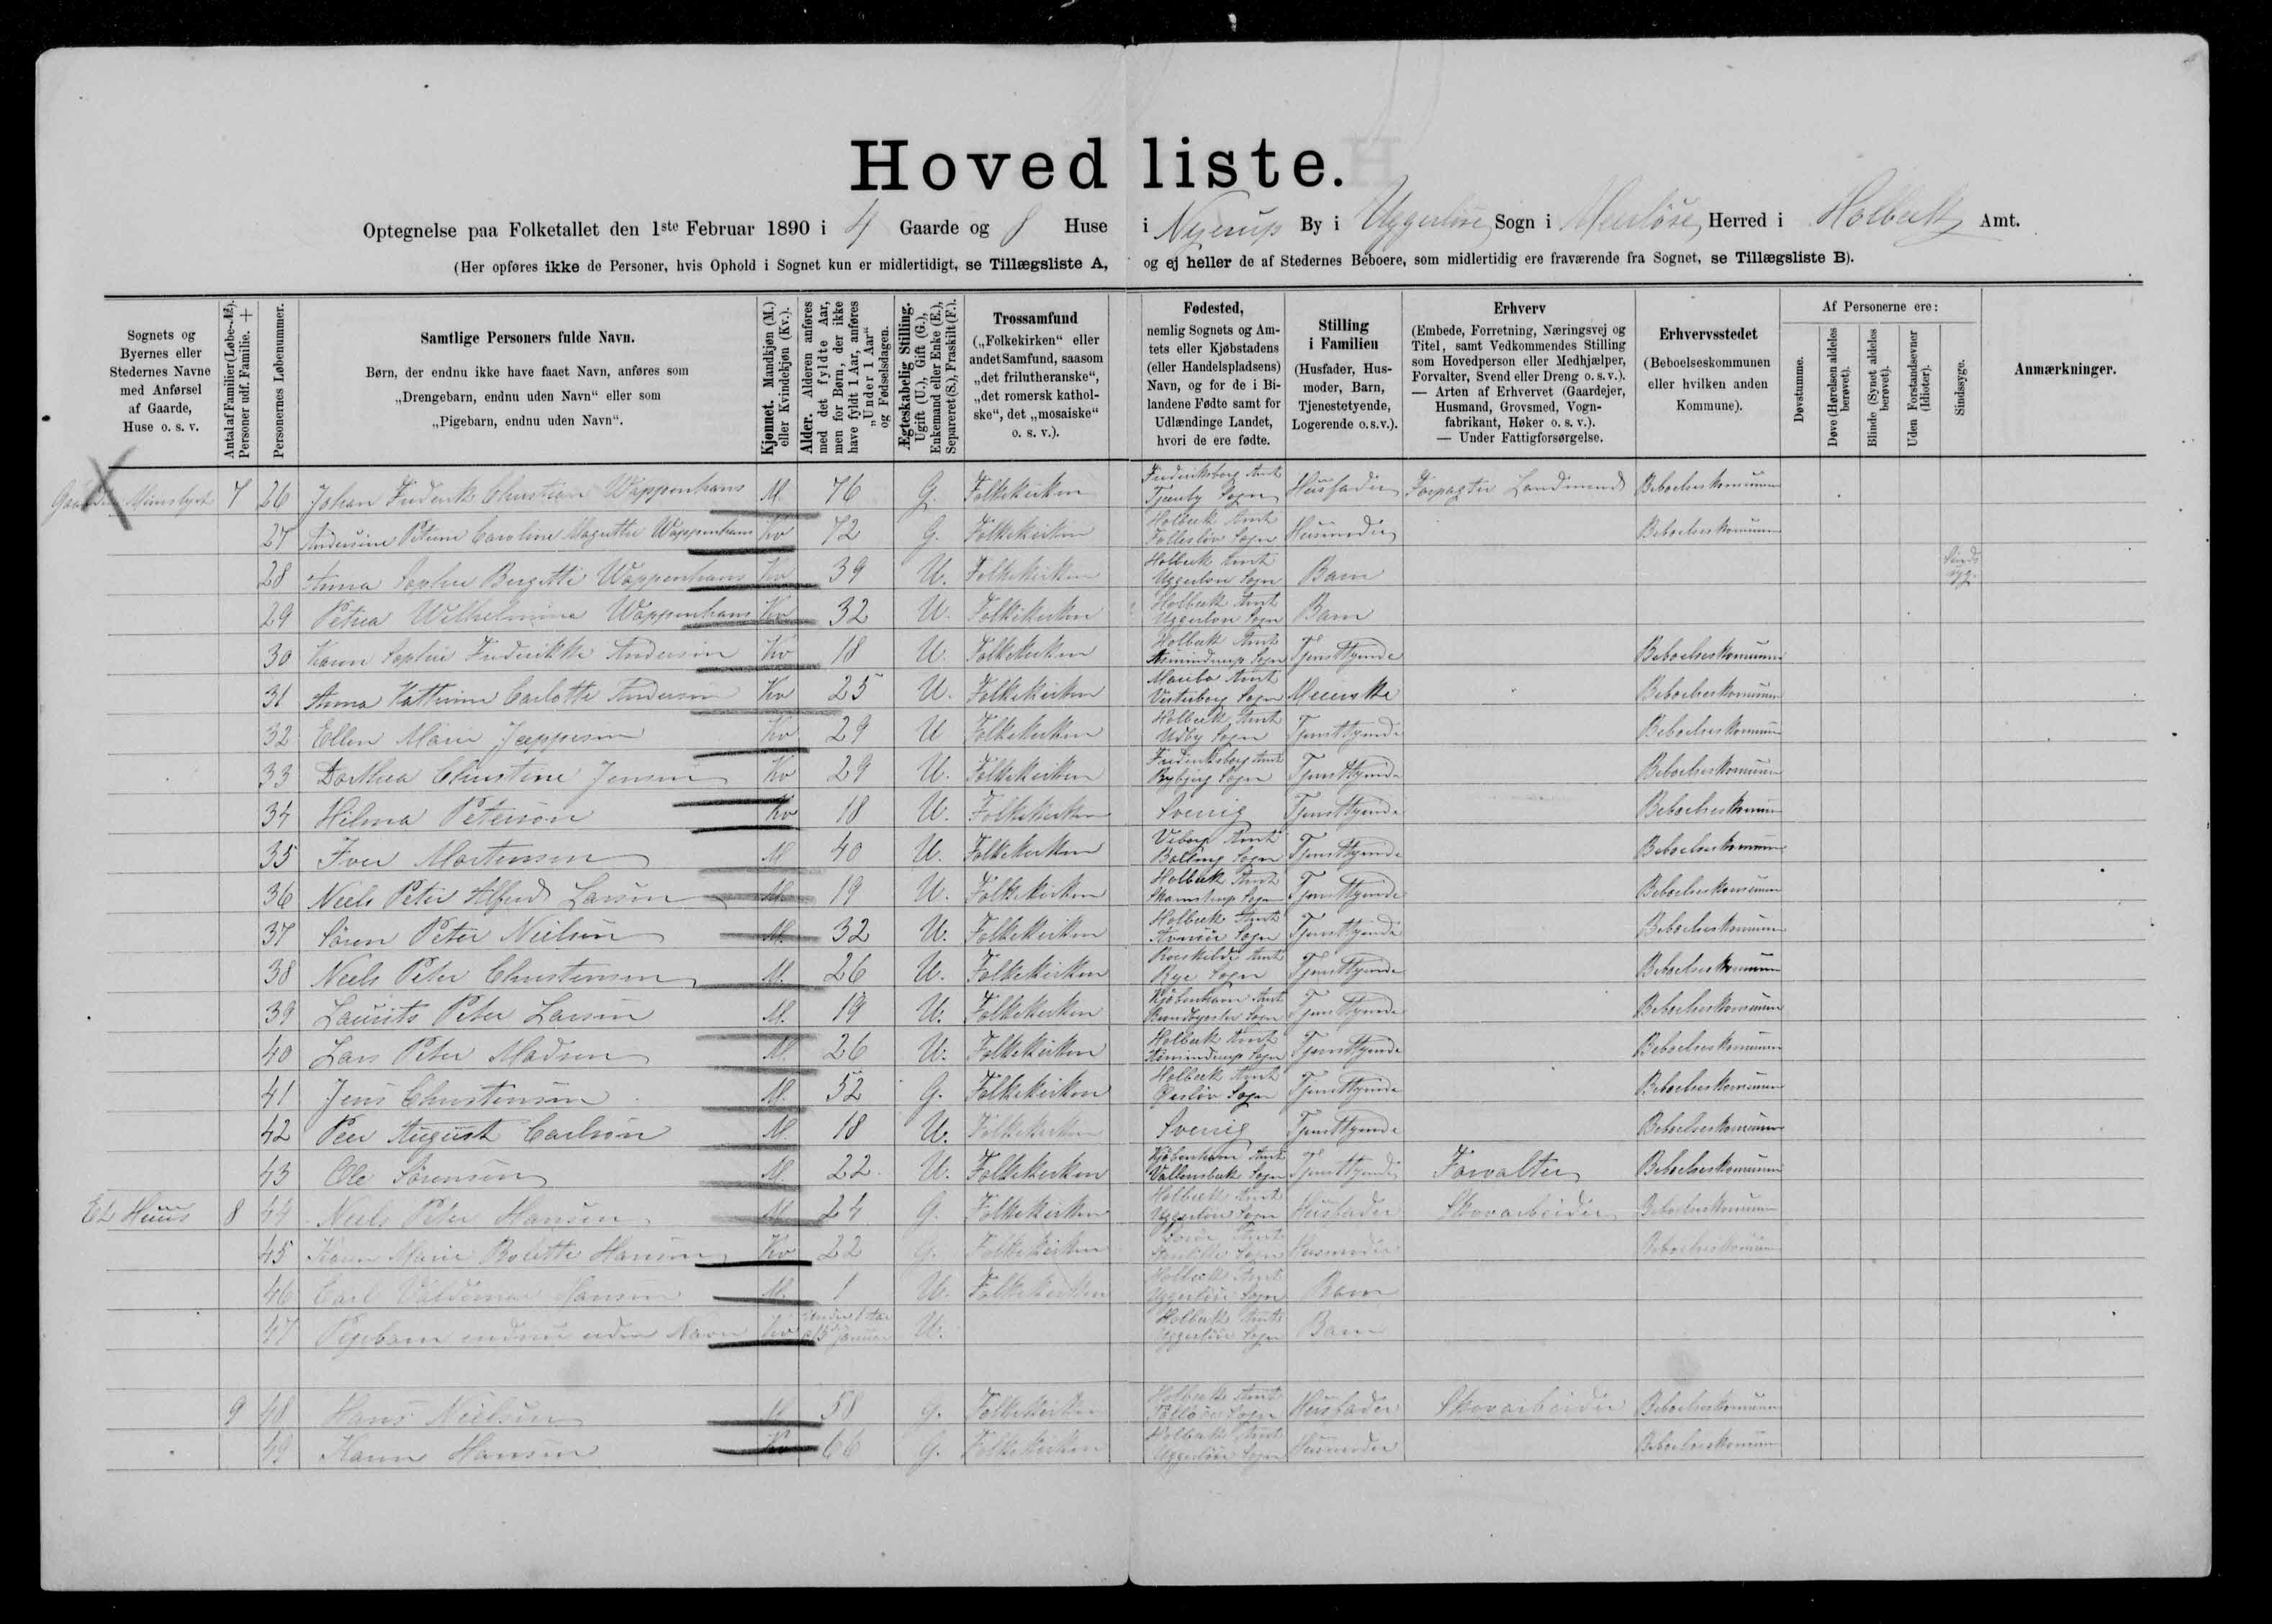 Hovedliste.
Optegnelse paa Folketallet den 1ste Februar 1890 i 4 Gaarde og 8 Huse i Nyrup By i Uggerløse Sogn i Merløse Herred i Holbæk Amt.
(Her opføres ikke de Personer, hvis Ophold i Sognet kun er midlertidigt, se Tillægsliste A, og ej heller de af Stedernes Beboere, som midlertidig ere fraværende fra Sognet, se Tillægsliste B).
Sognets og Byernes eller Stedernes Navne med Anførsel af Gaarde, Huse o. s. v.
Antal af Familier (Løbe-Æ). Personer udf. Familie. +
Personernes Løbenummer.
Samtlige Personers fulde Navn.
Børn, der endnu ikke have faaet Navn, anføres som „Drengebarn, endnu uden Navn“ eller som „Pigebarn, endnu uden Navn“.
Kjønnet. Mandkjøn (M.) eller Kvindekjøn (Kv.).
Alder. Alderen anføres med det fyldte Aar, men for Børn, der ikke have fyldt 1 Aar, anføres „Under 1 Aar“ og Fødselsdagen.
Ægteskabelig Stilling. Ugift (U.), Gift (G.), Enkemand eller Enke (E.), Separeret (S.), Fraskilt (F.).
Trossamfund („Folkekirken“ eller andet Samfund, saasom „det frilutheranske“, „det romersk katholske“, det „mosaiske“ o. s. v.).
Fødested, nemlig Sognets og Amtets eller Kjøbstadens (eller Handelspladsens) Navn, og for de i Bilandene Fødte samt for Udlændinge Landet, hvori de ere fødte.
Stilling i Familien (Husfader, Husmoder, Barn, Tjenestetyende, Logerende o.s.v.).
Erhverv (Embede, Forretning, Næringsvej og Titel, samt Vedkommendes Stilling som Hovedperson eller Medhjælper, Forvalter, Svend eller Dreng o. s. v.). — Arten af Erhvervet (Gaardejer, Husmand, Grovsmed, Vognfabrikant, Høker o. s. v.). — Under Fattigforsørgelse.
Erhvervsstedet (Beboelseskommunen eller hvilken anden Kommune).
Af Personerne ere:
Døvstumme.
Døve (Hørelsen aldeles berøvet).
Blinde (Synet aldeles berøvet).
Uden Forstandsevner (Idioter).
Sindssyge.
Anmærkninger.
7 26 Johan Frederik Christian Wappenhans M. 76 G. Folkekirken Frederiksborg Amt Tjæreby Sogn Husfader Forpagter Landmand Beboelseskommunen
27 Andersine Petrine Caroline Magrethe Wappenhans Kv 72 G. Folkekirken Holbæk Amt Følleslev Sogn Husmoder Beboelseskommunen
28 Anna Sophie Bergitte Wappenhans Kv 39 U. Folkekirken Holbæk Amt Uggerløse Sogn Barn Sinds syg.
29 Petrea Wilhelmine Wappenhans Kv 32 U. Folkekirken Holbæk Amt Uggerløse Sogn Barn
30 Karen Sophie Frederikke Andersen Kv 18 U. Folkekirken Holbæk Amt Asmindrup Sogn Tjensttyende Beboelseskommunen
31 Anna Kathrine Carlotte Andersen Kv 25 U. Folkekirken Maribo Amt Vesterborg Sogn Meierske Beboelseskommunen
32 Ellen Marie Jeppesen Kv 29 U Folkekirken Holbæk Amt Udby Sogn Tjensttyende Beboelseskommunen
33 Dorthea Christine Jensen Kv 29 U. Folkekirken Frederiksborg Amt Sogn Tjensttyende Beboelseskommunen
34 Hilma Peterson Kv 18 U. Folkekirken Sverrig Tjensttyende Beboelseskommunen
35 Iver Mortensen M 40 U. Folkekirken Viborg Amt Balling Sogn Tjensttyende Beboelseskommunen
36 Niels Peter Alfred Larsen M. 19 U. Folkekirken Holbæk Amt Skamstrup Sogn Tjensttyende Beboelseskommunen
37 Søren Peter Nielsen M. 32 U. Folkekirken Holbæk Amt Sogn Tjensttyende Beboelseskommunen
38 Niels Peter Christensen M. 26 U. Folkekirken Roeskilde Amt Rye Sogn Tjensttyende Beboelseskommunen
39 Laurits Peter Larsen M. 19 U. Folkekirken Kjøbenhavn Amt Sogn Tjensttyende Beboelseskommunen
40 Lars Peter Madsen M. 26 U. Folkekirken Holbæk Amt Asmindrup Sogn Tjensttyende Beboelseskommunen
41 Jens Christensen M. 52 G. Folkekirken Holbæk Amt Sogn Tjensttyende Beboelseskommunen
42 Peer August Carlson M. 18 U. Folkekirken Sverrig Tjensttyende Beboelseskommunen
43 Ole Sørensen M. 22 U. Folkekirken Kjøbenhavn Amt Vallensbæk Sogn Tjensttyende Forvalter Beboelseskommunen
Et Huus 8 44 Niels Peter Hansen M 24 G. Folkekirken Holbæk Amt Uggerløse Sogn Husfader Skovarbeider Beboelseskommunen
45 Karen Marie Bolette Hansen Kv 22 G. Folkekirken Sorø Amt Sogn Husmoder Beboelseskommunen
46 Carl Valdemar Hansen M. 1 U. Folkekirken Holbæk Amt Uggerløse Sogn Barn
47 Pigebarn endnu uden Navn Kv Under 1 Aar Januar U. Holbæk Amt Uggerløse Sogn Barn
9 48 Hans Nielsen M 58 G. Folkekirken Holbæk Amt Sogn Husfader Skovarbeider Beboelseskommunen
49 Karen Hansen Kv 66 G. Folkekirken Holbæk Amt Uggerløse Sogn Husmoder Beboelseskommunen